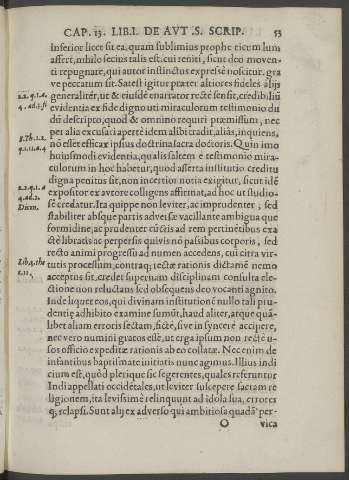 CAP. 13. LIB. I. DE AVT. S. SCRIP. 53
inferior licet sit ea, quam sublimius prophe ticum lum
affert, nihilo secius talis est, cui reniti, sicut deo moven-
ti repugnare, qui autor instinctus expressè noscitur, gra
ve peccatum sit. Satest igitur præter altiores fideles alijs
generalitèr, ut & eiusdē enarrator rectè sensit, credibiliū
evidentia ex fide digno uti miraculorum testimonio du
dū descripto, quod & omnino requiri præmissum, nec
per alia excusari apertè idem alibi tradit, aliàs, inquiens,
nō esset efficax ipsius doctrina sacra doctoris. Quin imo
huiusmodi evidentia, qualis saltem è testimonio mira-
culorum in hoc habetur, quod asserta institutio creditu
digna penitus sit, non incertior notia exigitur, sicut idē
expositor ex autore colligens affirmat, ad hoc ut studio-
sè credatur. Ita quippe non leviter, ac imprudenter, sed
stabiliter absque partis adversæ vacillante ambigua que
formidine, ac prudenter cūctis ad rem pertinētibus exa
ctè libratis ac perpensis quivis nō passibus corporis, sed
recto animi progressu ad numen accedens, cui citra vir-
tutis processum, contraq; rectæ rationis dictamē nemo
acceptus sit, credet supernam disciplinam consulta ele-
ctione non reluctans sed obsequens deo vocanti agnito.
Inde liquet eos, qui divinam institutionē nullo tali pru-
dentię adhibito examine sumūt, haud aliter, atque quā-
libet aliam erroris sectam, fictè, sive in syncerè accipere,
nec vero numini gratos esse, ut erga ipsum non rectè u-
sos officio expeditæ rationis ab eo collatæ. Nec enim de
infantibus baptismate initiatis nunc agimus. Illius indi
cium est, quòd plerique sic se gerentes, quales referuntur
Indi appellati occidētales, ut leviter suscepere sacram re
ligionem, ita levissimè relinquunt ad idola sua, errores
q; relapsi. Sunt alij ex adverso qui ambitiosa quadā per-
O vica
2.2. q.1.a.
4. ad.2.
2.2. q.1.a
4. ad.2.
Diony.